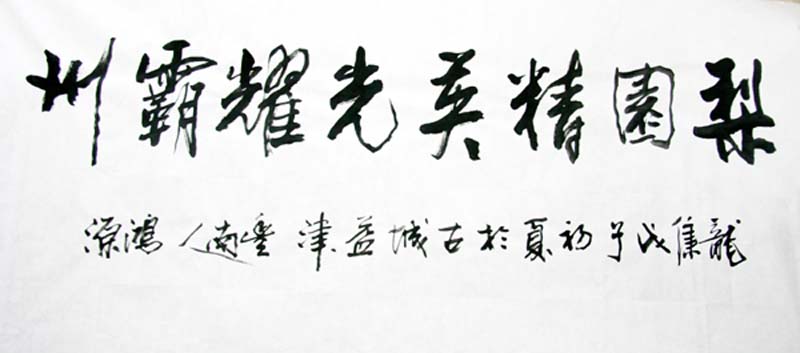 梨園精英光耀霸州
龍集戊子初夏於古城益津豐南人鴻源